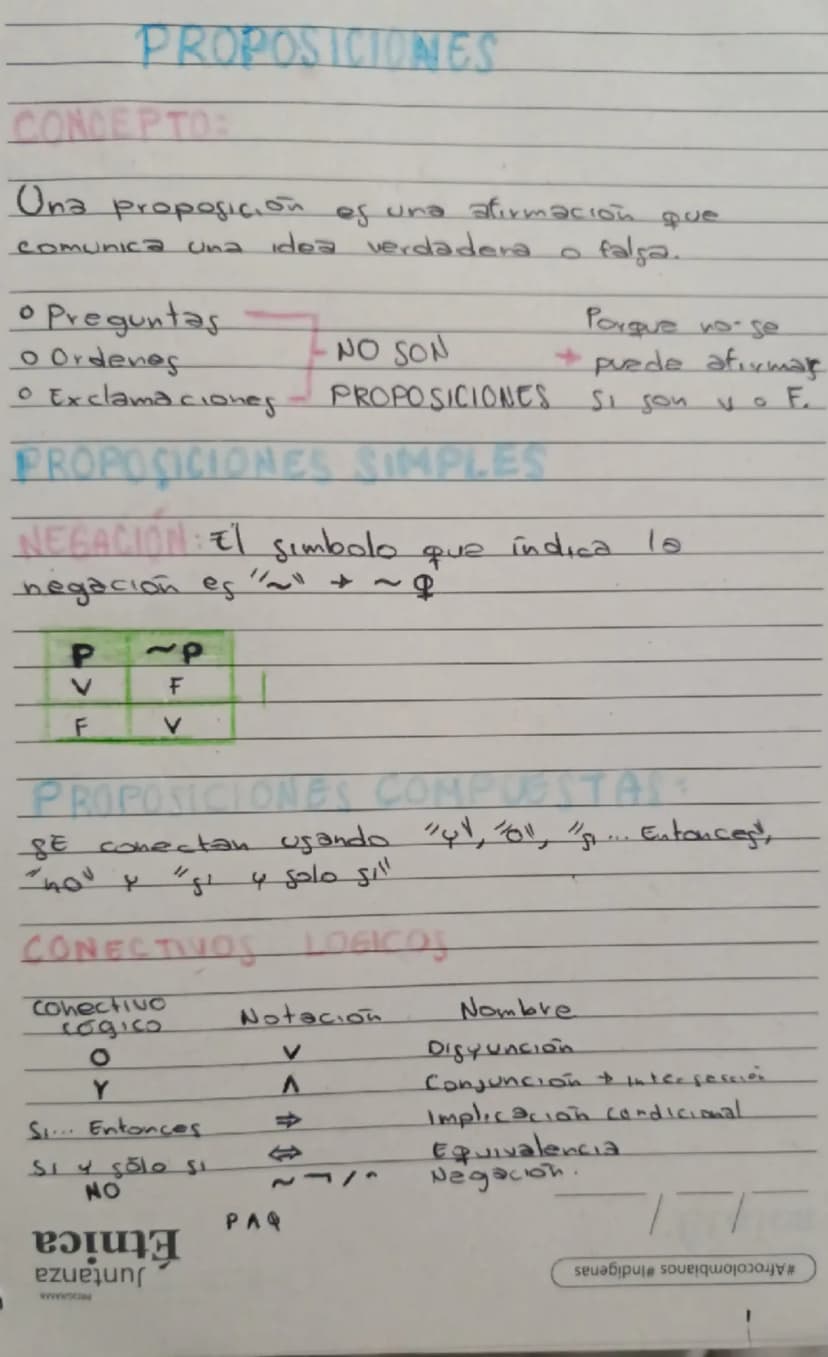 PROPOSICIONES
CONCEPTO:
Una proposición es una afirmación que
comunica una idea verdadera o falsa.
o Preguntas
o Ordenes
o Exclamaciones
NO SON
PROPOSICIONES
Porque no se
→ puede afirmar
si son v o F.
PROPOSICIONES SIMPLES
NEGACIÓN: El simbolo que indica la
negación es "~" → ~
P ~P
V F
F V
PROPOSICIONES COMPUESTAS:
SE conectan usando "y", "o", "si... Entonces",
"no" y "si y solo si"
CONECTIVOS LOGICOS
Conectivo Lógico Notación Nombre
O V Disyunción
Y Λ Conjunción → Intersección
Si... Entonces ⇒ Implicación condicional
Si y sólo si ⇔ Equivalencia
NO ~ ¬ / ^ Negación.
P Λ Q
Étnica
Juntanza
PROGRAMA
#Afrocolombianos #Indígenas